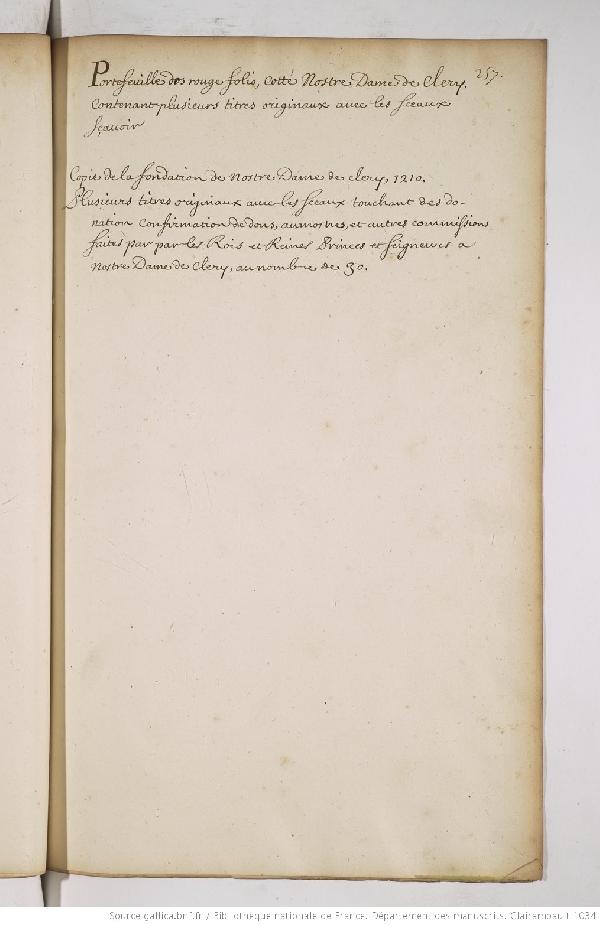 257.
Portefeuille dos rouge folio, Cotté Nostre Dame de Clery,
Contenant plusieurs titres originaux avec les sceaux
sçavoir
Copie de la fondation de Nostre Dame de clery, 1210.
Plusieurs titres originaux avec les sceaux touchant des do-
nation Confirmation de dons, aumosnes, et autres commissions
faites par par les Rois et Reines Princes et seigneurs a
Nostre Dame de Clery, au nombre de 30.
Source gallica.bnf.fr / Bibliothèque nationale de France. Département des manuscrits. Clairambault 1034